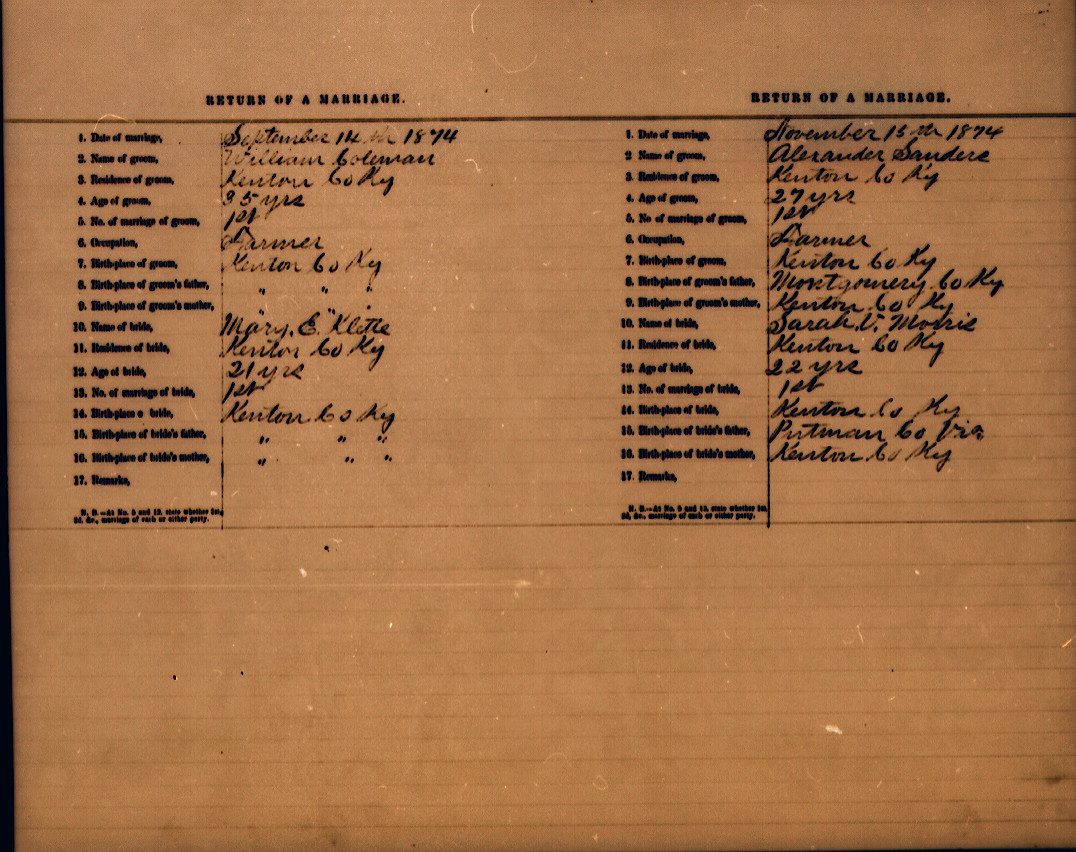 RETURN OF A MARRIAGE.
1. Date of marriage, September 14th 1874
2. Name of groom, William Coleman
3. Residence of groom, Kenton Co Ky
4. Age of groom, 35 yrs
5. No. of marriage of groom, 1st
6. Occupation, Farmer
7. Birth-place of groom, Kenton Co Ky
8. Birth-place of groom's father, " " "
9. Birth-place of groom's mother, " "
10. Name of bride, Mary, E. Klette
11. Residence of bride, Kenton Co Ky
12. Age of bride, 21 yrs
13. No. of marriage of bride, 1st
14. Birth-place o bride, Kenton Co Ky
15. Birth-place of bride's father, " " "
16. Birth-place of bride's mother, " " "
17. Remarks,
N. B.—At No. 5 and 13, state whether 1st,
2d, &c., marriage of each or either party.
RETURN OF A MARRIAGE.
1. Date of marriage, November 15th 1874
2 Name of groom, Alexander Sanders
3 Residence of groom, Kenton Co Ky
4. Age of groom, 27 yrs
5. No of marriage of groom, 1st
6. Occupation, Farmer
7. Birth-place of groom, Kenton Co Ky
8. Birth-place of groom's father, Montgomery Co Ky
9. Birth-place of groom's mother, Kenton Co Ky
10. Name of bride, Sarah V. Morris
11. Residence of bride, Kenton Co Ky
12. Age of bride, 22 yrs
13. No. of marriage of bride, 1st
14. Birth-place of bride, Kenton Co Ky
15. Birth-place of bride's father, Putman Co Via
16. Birth-place of bride's mother, Kenton Co Ky
17. Remarks,
N. B.—At No. 5 and 13, state whether 1st,
2d, &c., marriage of each or either party.